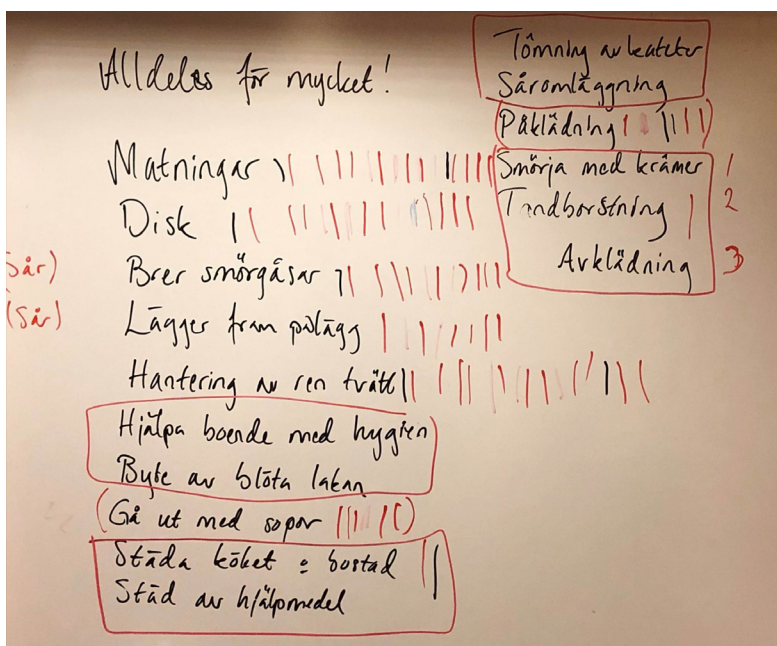 Alldeles för mycket!
Matningar
Disk
Brer smörgåsar
Lägger fram pålägg
Hantering av ren tvätt
Hjälpa boende med hygien
Byte av blöta lakan
(Gå ut med sopor)
Städa köket : bostad
Städ av hjälpmedel
Tömning av kateter
Såromläggning
(Påklädning)
Smörja med krämer 1
Tandborstning 2
Avklädning 3
Sår)
(Sår)